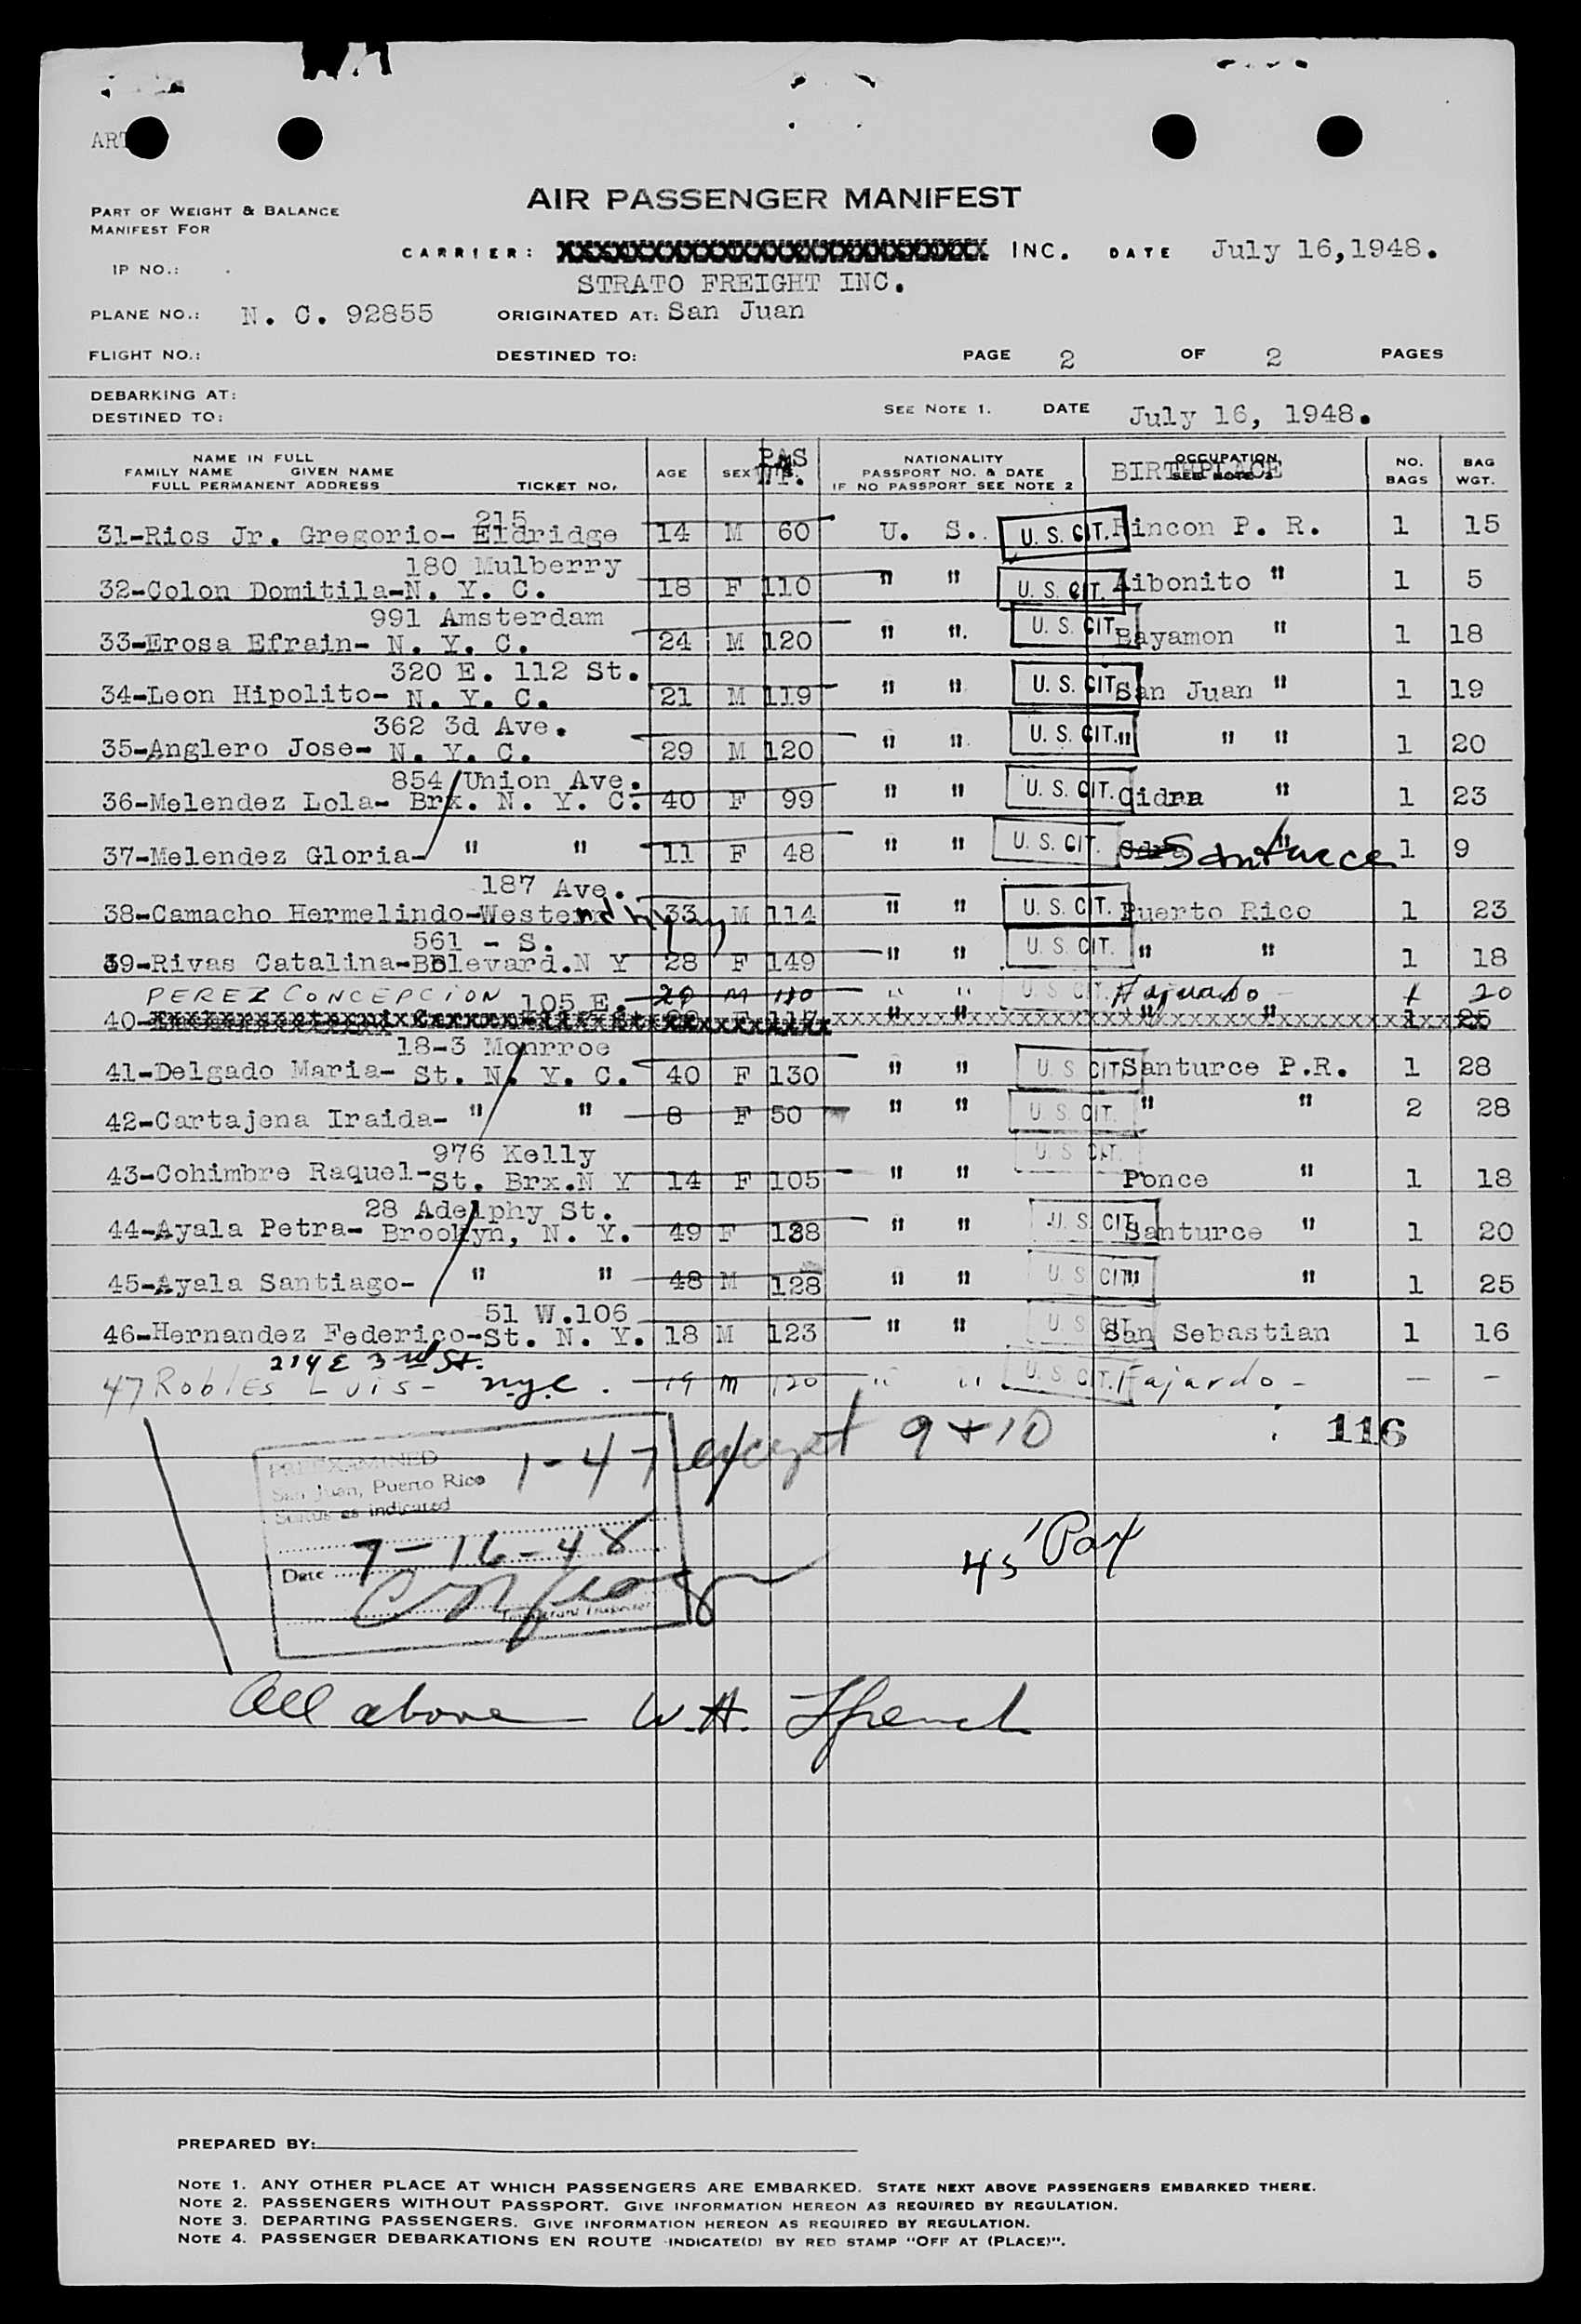 ART
AIR PASSENGER MANIFEST
PART OF WEIGHT & BALANCE
MANIFEST FOR
CARRIER: XXXXXXXXXXXXXXXXXXXXXXXXX INC. DATE July 16,1948.
IP NO.:
STRATO FREIGHT INC.
PLANE NO.: N. C. 92855 ORIGINATED AT: San Juan
FLIGHT NO.: DESTINED TO: PAGE 2 OF 2 PAGES
DEBARKING AT:
DESTINED TO: SEE NOTE 1. DATE July 16, 1948.
NAME IN FULL
FAMILY NAME GIVEN NAME
FULL PERMANENT ADDRESS TICKET NO. AGE SEX PAS WT. NATIONALITY
PASSPORT NO. & DATE
IF NO PASSPORT SEE NOTE 2 OCCUPATION
BIRTHPLACE NO. BAGS BAG WGT.
215
31-Rios Jr. Gregorio- Eldridge 14 M 60 U. S. U. S. CIT. Rincon P. R. 1 15
180 Mulberry
32-Colon Domitila-N. Y. C. 18 F 110 " " U. S. CIT. Aibonito " 1 5
991 Amsterdam
33-Erosa Efrain- N. Y. C. 24 M 120 " " U. S. CIT. Bayamon " 1 18
320 E. 112 St.
34-Leon Hipolito- N. Y. C. 21 M 119 " " U. S. CIT. San Juan " 1 19
362 3d Ave.
35-Anglero Jose- N. Y. C. 29 M 120 " " U. S. CIT. " " " 1 20
854 Union Ave.
36-Melendez Lola- Brx. N. Y. C. 40 F 99 " " U. S. CIT. Cidra " 1 23
37-Melendez Gloria- " " 11 F 48 " " U. S. CIT. Santurce " 1 9
187 Ave.
38-Camacho Hermelindo-Western 33 M 114 " " U. S. CIT. Puerto Rico 1 23
561 - S.
39-Rivas Catalina-Bolevard.N Y 28 F 149 " " U. S. CIT. " " 1 18
PEREZ CONCEPCION 105 E. 29 M 180 " " U. S. CIT. Fajardo - 1 20
40- " " " " 1 25
18-3 Monrroe
41-Delgado Maria- St. N. Y. C. 40 F 130 " " U. S. CIT. Santurce P.R. 1 28
42-Cartajena Iraida- " " 8 F 50 " " U. S. CIT. " " 2 28
976 Kelly
43-Cohimbre Raquel-St. Brx.N Y 14 F 105 " " U. S. CIT. Ponce " 1 18
28 Adelphy St.
44-Ayala Petra- Brooklyn, N. Y. 49 F 138 " " U. S. CIT. Santurce " 1 20
45-Ayala Santiago- " " 48 M 128 " " U. S. CIT. " " 1 25
51 W.106
46-Hernandez Federico-St. N. Y. 18 M 123 " " U. S. CIT. San Sebastian 1 16
214 E 3rd St.
47 Robles Luis- nyc. 19 m 120 " " U. S. CIT. Fajardo - — -
1-47 except 9 + 10 116
PREEXAMINED
San Juan, Puerto Rico
Status as indicated
Date 7-16-48
Immigrant Inspector
45 Pax
All above W.H. Ffrench
PREPARED BY:
NOTE 1. ANY OTHER PLACE AT WHICH PASSENGERS ARE EMBARKED. STATE NEXT ABOVE PASSENGERS EMBARKED THERE.
NOTE 2. PASSENGERS WITHOUT PASSPORT. GIVE INFORMATION HEREON AS REQUIRED BY REGULATION.
NOTE 3. DEPARTING PASSENGERS. GIVE INFORMATION HEREON AS REQUIRED BY REGULATION.
NOTE 4. PASSENGER DEBARKATIONS EN ROUTE INDICATE(D) BY RED STAMP "OFF AT (PLACE)".